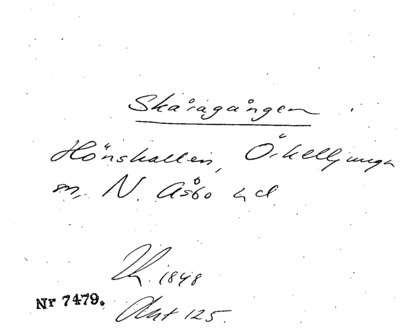 Skåragången
Hönshallen, Örkelljunga
sn, N. Åsbo hd
1848
Nr 7479.
Akt 125.